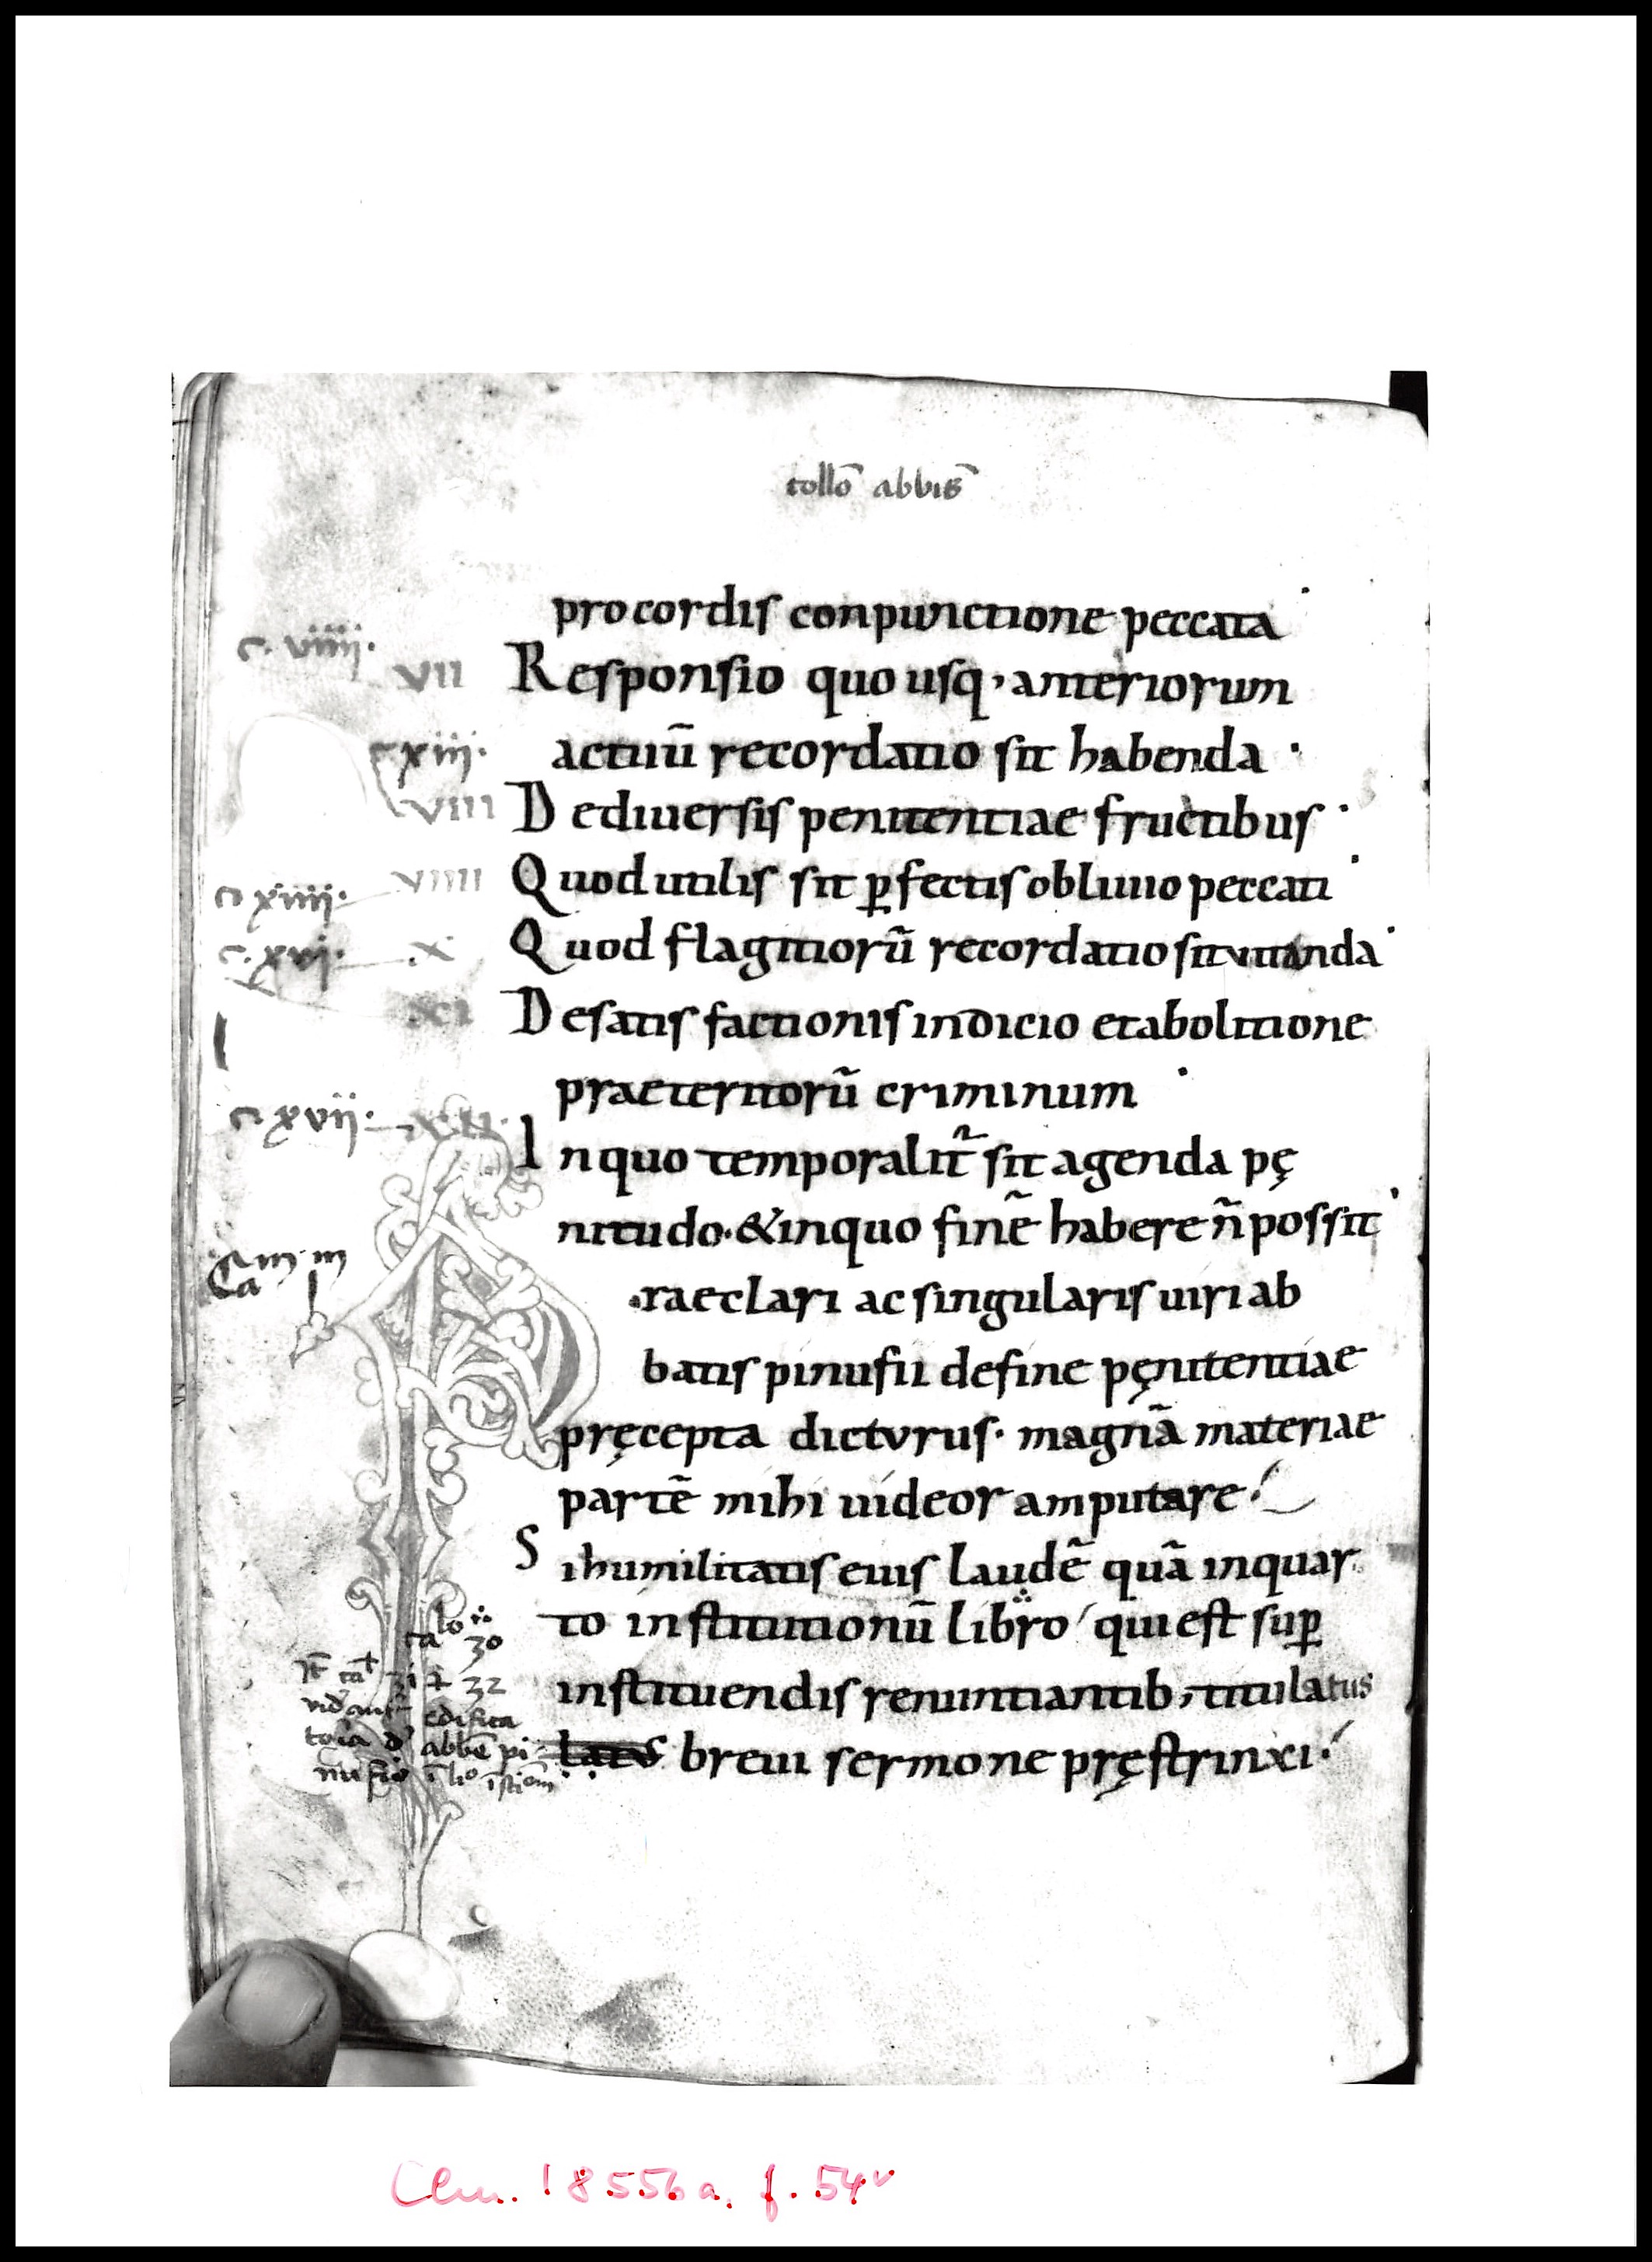 collō abbis̄
pro cordis conpunctione peccata ·
c. viiii.
VII Responsio quo usq, anteriorum
c xiii.
actuū recordatio sit habenda ·
VIII De diuersis penitentiae fructibus ·
c xiiii.
VIIII Quod utilis sit ꝑfectis obliuio peccati ·
c. xvi.
X Quod flagitiorū recordatio sit uitanda ·
XI De satisfactionis indicio et abolitione
praeteritorū criminum ·
c. xvii.
XII. In quo temporalit̄ sit agenda pę
nitudo. & in quo finē habere n̄ possit ·
Praeclari ac singularis uiri ab
batis pinufii de fine pęnitentiae
pręcepta dicturus · magnā materiae
partē mihi uideor amputare ·
Si humilitatis eius laudē quā in quar
to institutionū libro qui est suꝑ
instituendis renuntiantib, titulatus
breui sermone pręstrinxi ·
30
32
edifica
toia d' abbē pi
nufio
Clm. 18556a, f. 54v